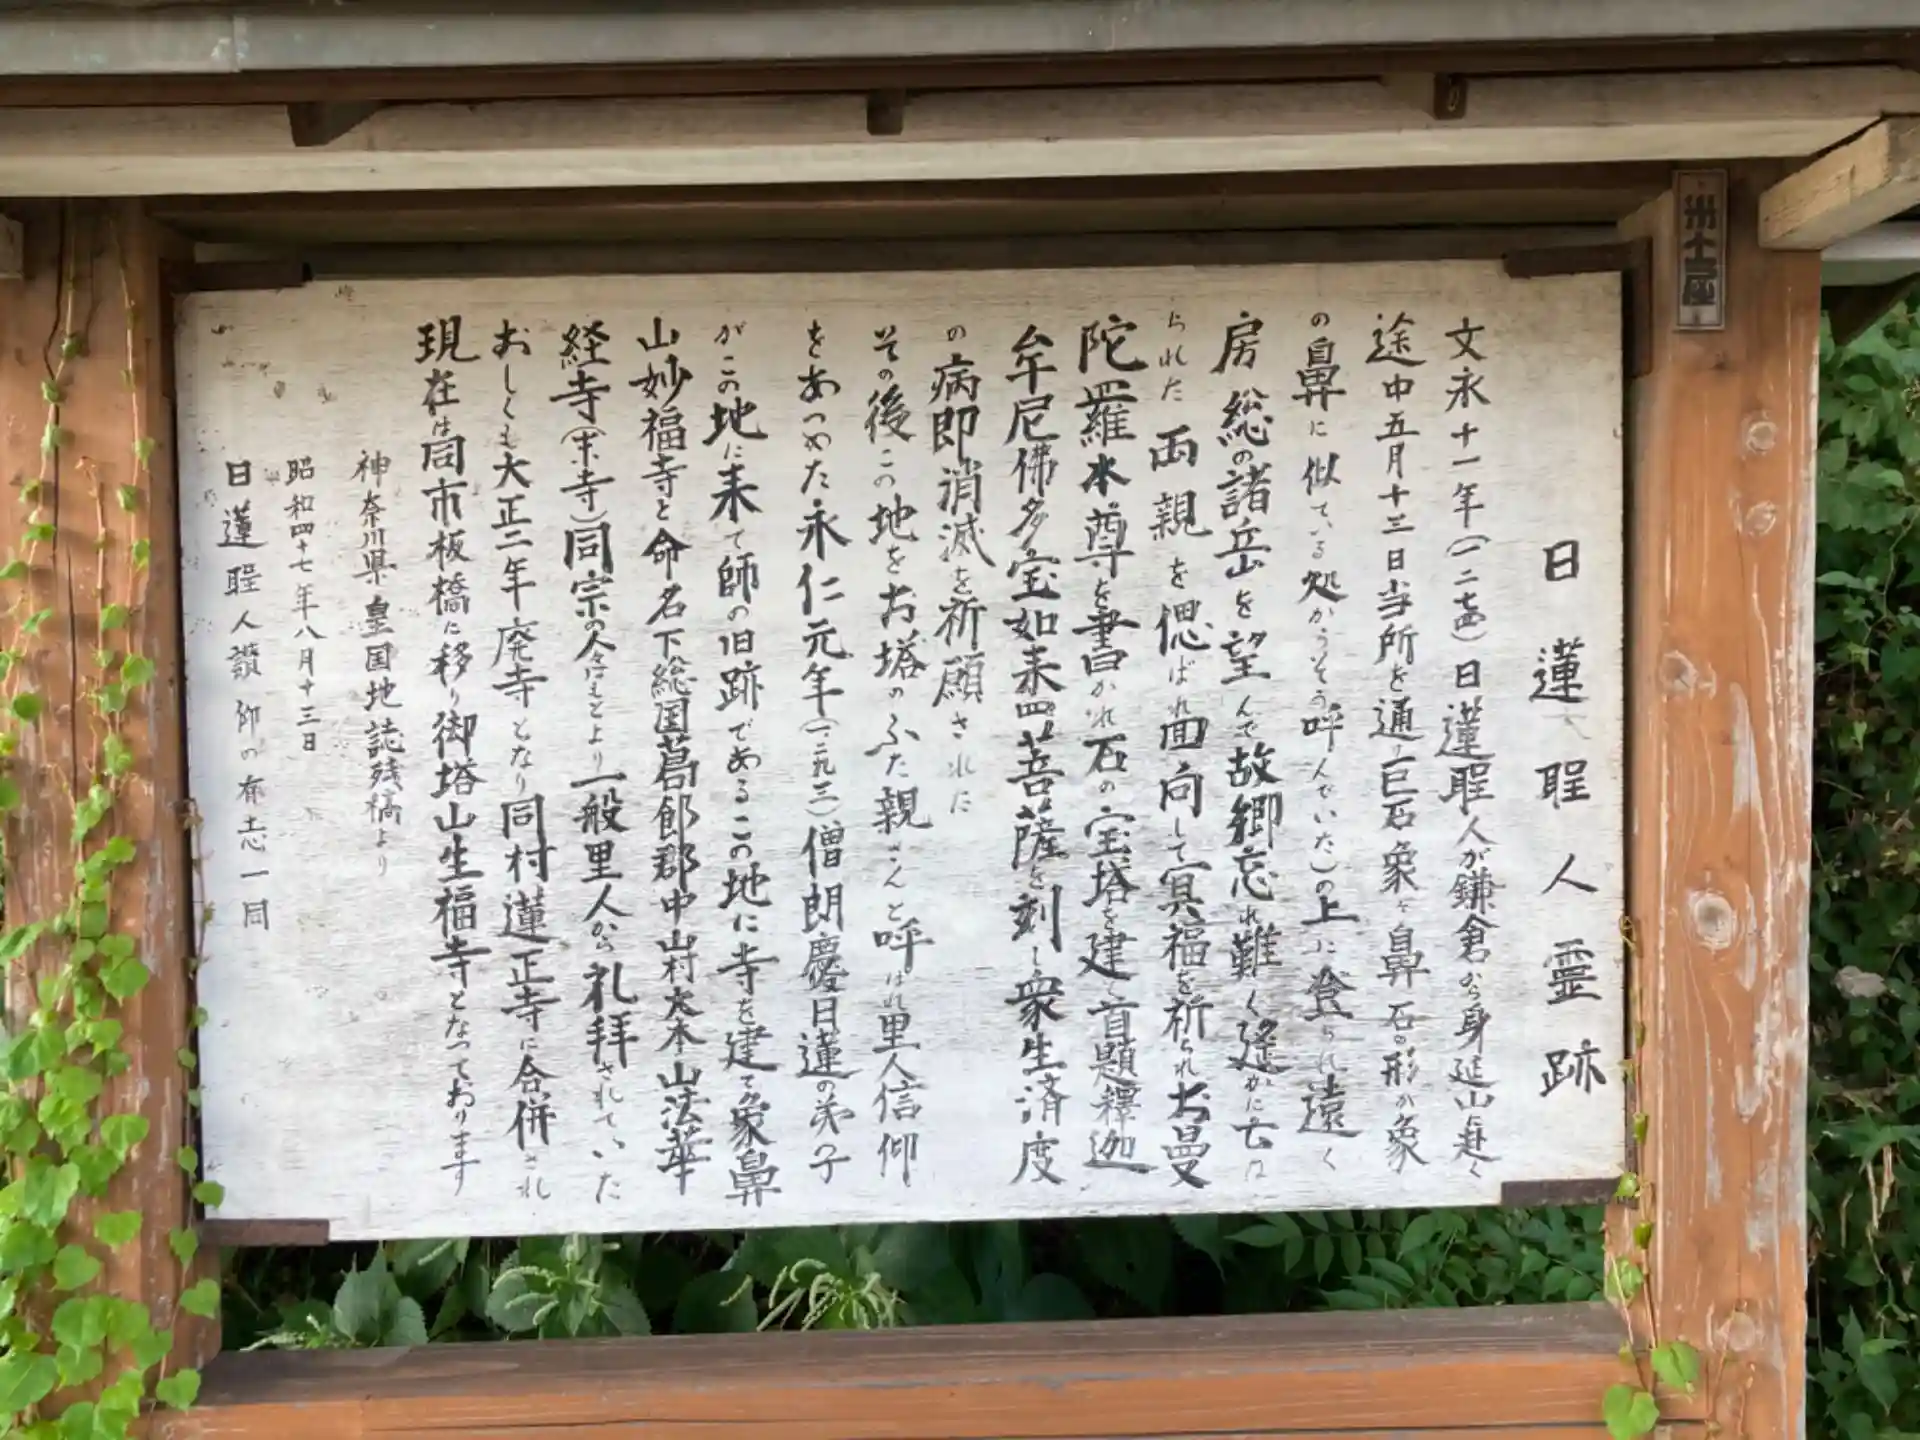 日蓮聖人霊跡
文永十一年(一二七四)日蓮聖人が鎌倉から身延山に赴く
途中五月十三日当所を通り巨石象ヶ鼻(石の形が象
の鼻に似ている処からそう呼んでいた)の上に登られ遠く
房総の諸岳を望んで故郷忘れ難く遥かに亡は
られた両親を偲ばれ回向して冥福を祈られお曼
陀羅本尊を書かれ石の宝塔を建て首題釋迦
牟尼佛多宝如来四菩薩を刻し衆生済度
の病即消滅を祈願されたに
その後この地をお塔のふた親さんと呼ばれ里人信仰
をあつめた永仁元年(一二九三)僧朗慶日蓮の弟子
がこの地に来て師の旧跡であるこの地に寺を建て象鼻
山妙福寺と命名下総国葛飾郡中山村大本山法華
経寺(末寺)同宗の人々はもとより一般里人から礼拝されていた
おしくも大正二年廃寺となり同村蓮正寺に合併され
現在は同市板橋に移り御塔山生福寺となっております
神奈川県皇国地誌残稿より
昭和四十七年八月十三日
日蓮聖人讃仰の有志一同